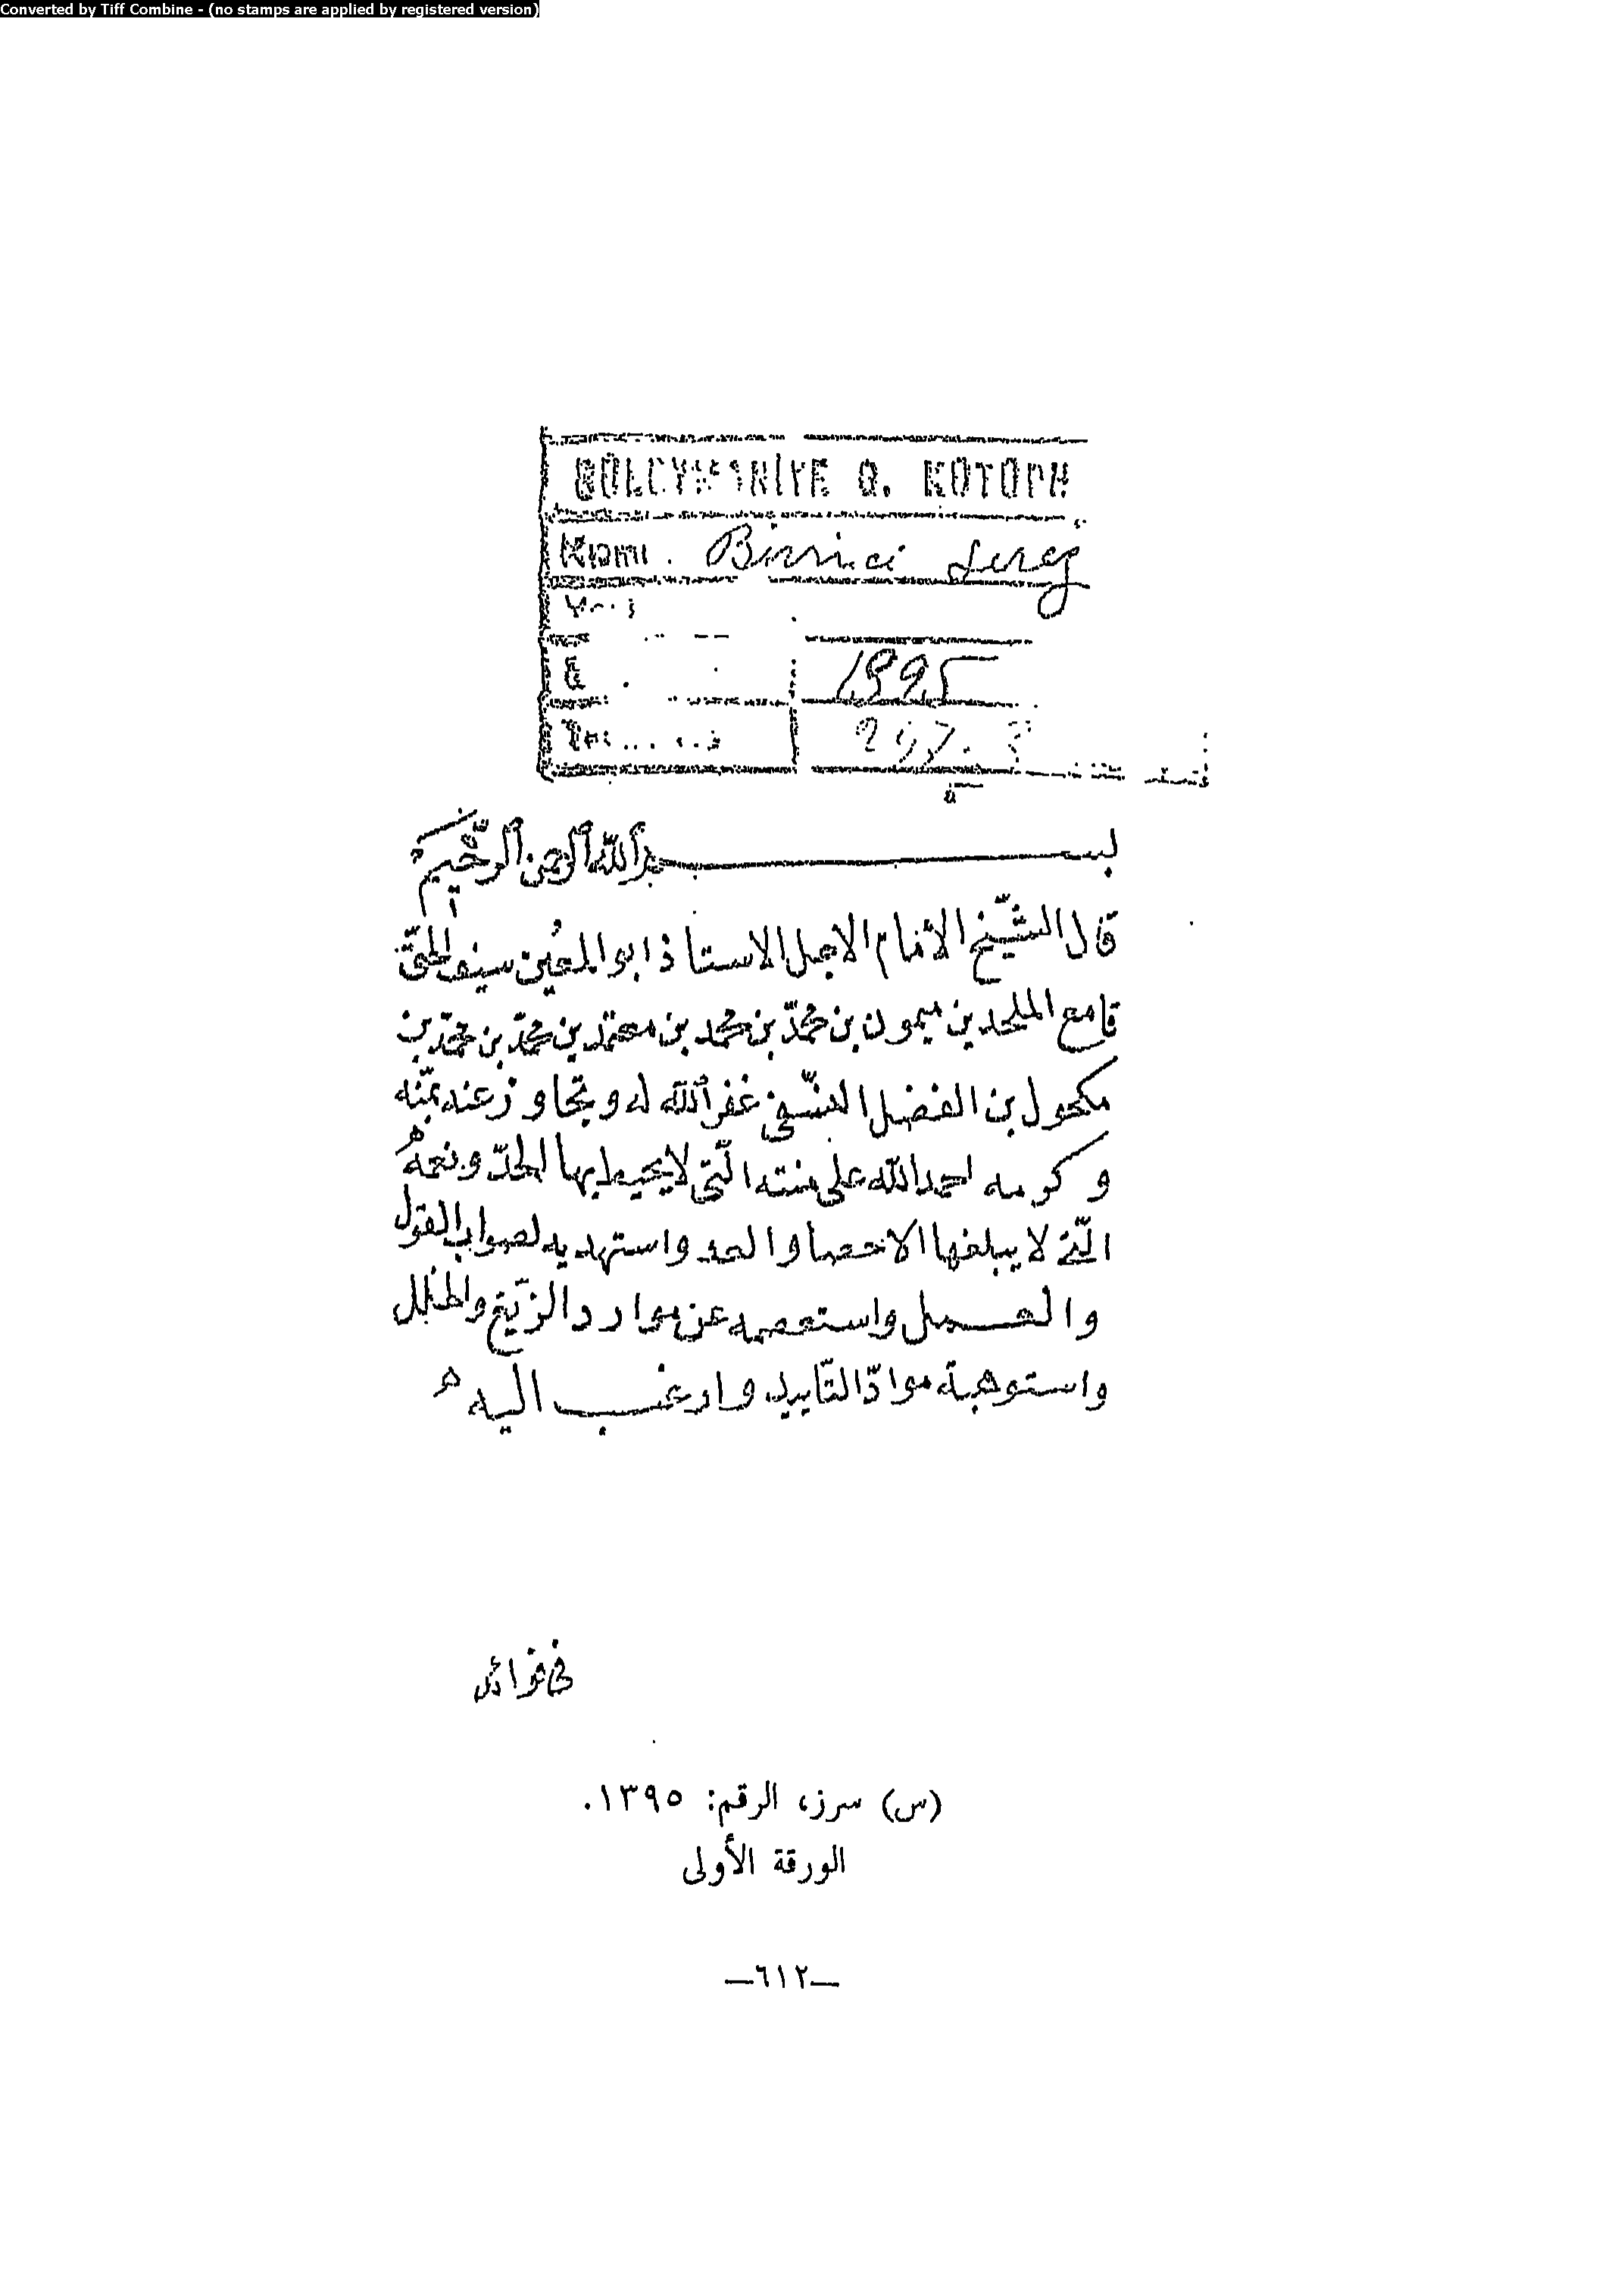 Converted by Tiff Combine - (no stamps are applied by registered version)
Kısmı Birinci Serez
بسم الله الرحمن الرحيم
قال الشّيخ الامام الاجل الاستاذ ابو المعين سيف الحقّ
قامع الملحدين ميمون بن محمّد بن محمد بن معتمد بن محمّد بن محمّد بن
مكحول بن الفضل النسّفى غفر الله له وتجاوز عنه بمنّه
وكرمه احمد الله على منته الّتى لا يحيط بها الحدّ ونعمه
الّتى لا يبلغها الاحصا والعد واستهديه لصواب القول
والعمل واستعصمه عن موارد الزّيغ والخلل
واستوهبه موادّ التّاييد وارغب اليه
فى فوائد
(س) سرز، الرقم: ١٣٩٥.
الورقة الأولى
—٦١٢—